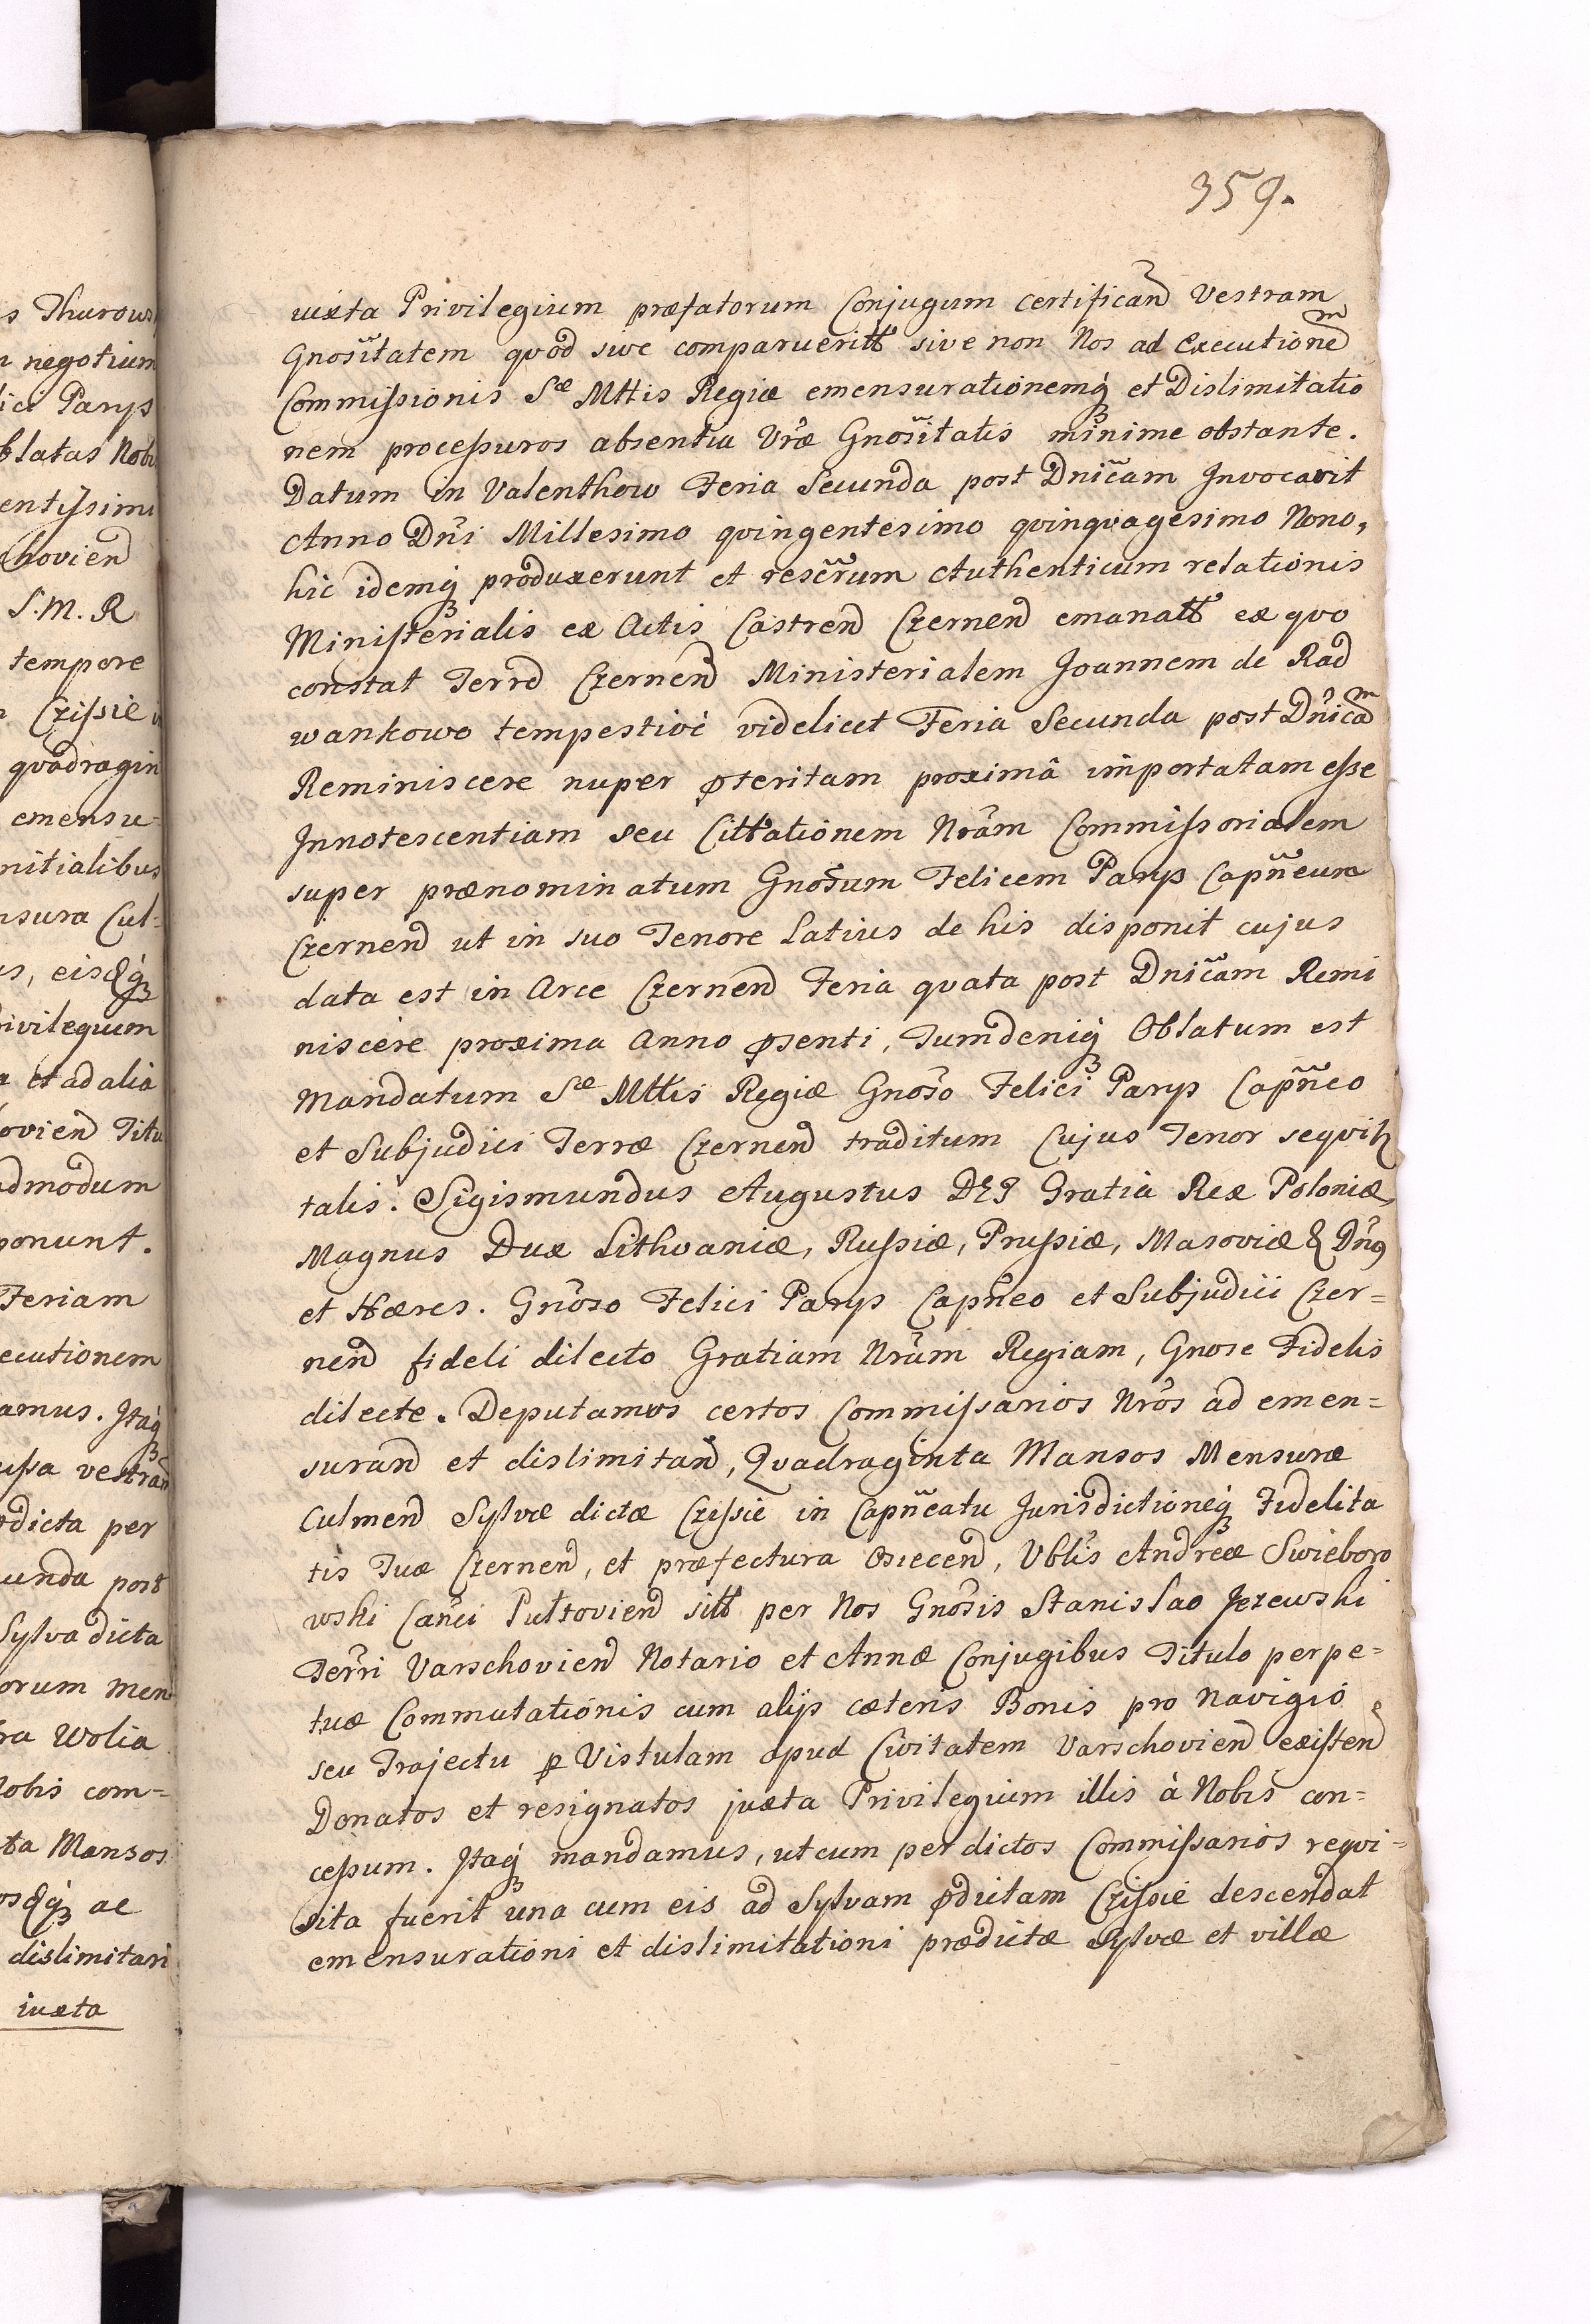 359.
iuxta Privilegium præfatorum Conjugum certificand Vestram
Gnositatem quod sive comparueritt sive non Nos ad Executionem
Commissionis Sæ Mttis Regiæ emensurationemq et Dislimitatio
nem processuros absentia Vræ Gnositatis minime obstante.
Datum in Valenthow Feria Secunda post Dnicam Invocavit
Anno Dni Millesimo qvingentesimo qvinqvagesimo Nono,
hic idemq produxerunt et rescrum Authenticum relationis
Ministerialis ex Actis Castrend Czernend emanatt ex qvo
constat Terrd Czernend Ministerialem Joannem de Rad
wankowo tempestivè videlicet Feria Secunda post Dnicam
Reminiscere nuper pteritam proximâ importatam esse
Innotescentiam seu Cittationem Nram Commissorialem
super prænominatum Gnosum Felicem Parys Capneum
Czernend ut in suo Tenore Latius de his disponit cujus
data est in Arce Czernend Feria qvata post Dnicam Remi
niscere proxima Anno psenti, Tumdeniq Oblatum est
Mandatum Sæ Mttis Regiæ Gnoso Felici Parys Capneo
et Subjudici Terræ Czernend traditum Cujus Tenor seqvitz
talis. Sigismundus Augustus DEI Gratia Rex Poloniæ,
Magnus Dux Lithvaniæ, Russiæ, Prussiæ, Masoviæ & Dng
et Hæres. Gnoso Felici Parys Capneo et Subjudici Czer=
nend fideli dilecto Gratiam Nram Regiam, Gnose Fidelis
dilecte. Deputamus certos Commissarios Nros ad emen=
surand et dislimitand, Qvadraginta Mansos Mensuræ
Culmend Sylvæ dictæ Czissie in Capncatu Jurisdictioneq Fidelita
tis Tuæ Czernend, et præfectura Osiecend, Vblis Andreæ Swieboro
wski Canci Pultoviend sitt per Nos Gnosis Stanislao Jezewski
Terri Varschoviend Notario et Annæ Conjugibus Titulo perpe=
tuæ Commutationis cum alijs cæteris Bonis pro navigio
seu Trajectu p Vistulam apud Civitatem Varschoviend existend
Donatos et resignatos juxta Privilegium illis à Nobis con=
cessum. Itaq mandamus, ut cum per dictos Commissarios reqvi=
sita fuerit una cum eis ad Sylvam pdictam Czissie descendat
emensurationi et dislimitationi prædictæ Sylvæ et villæ